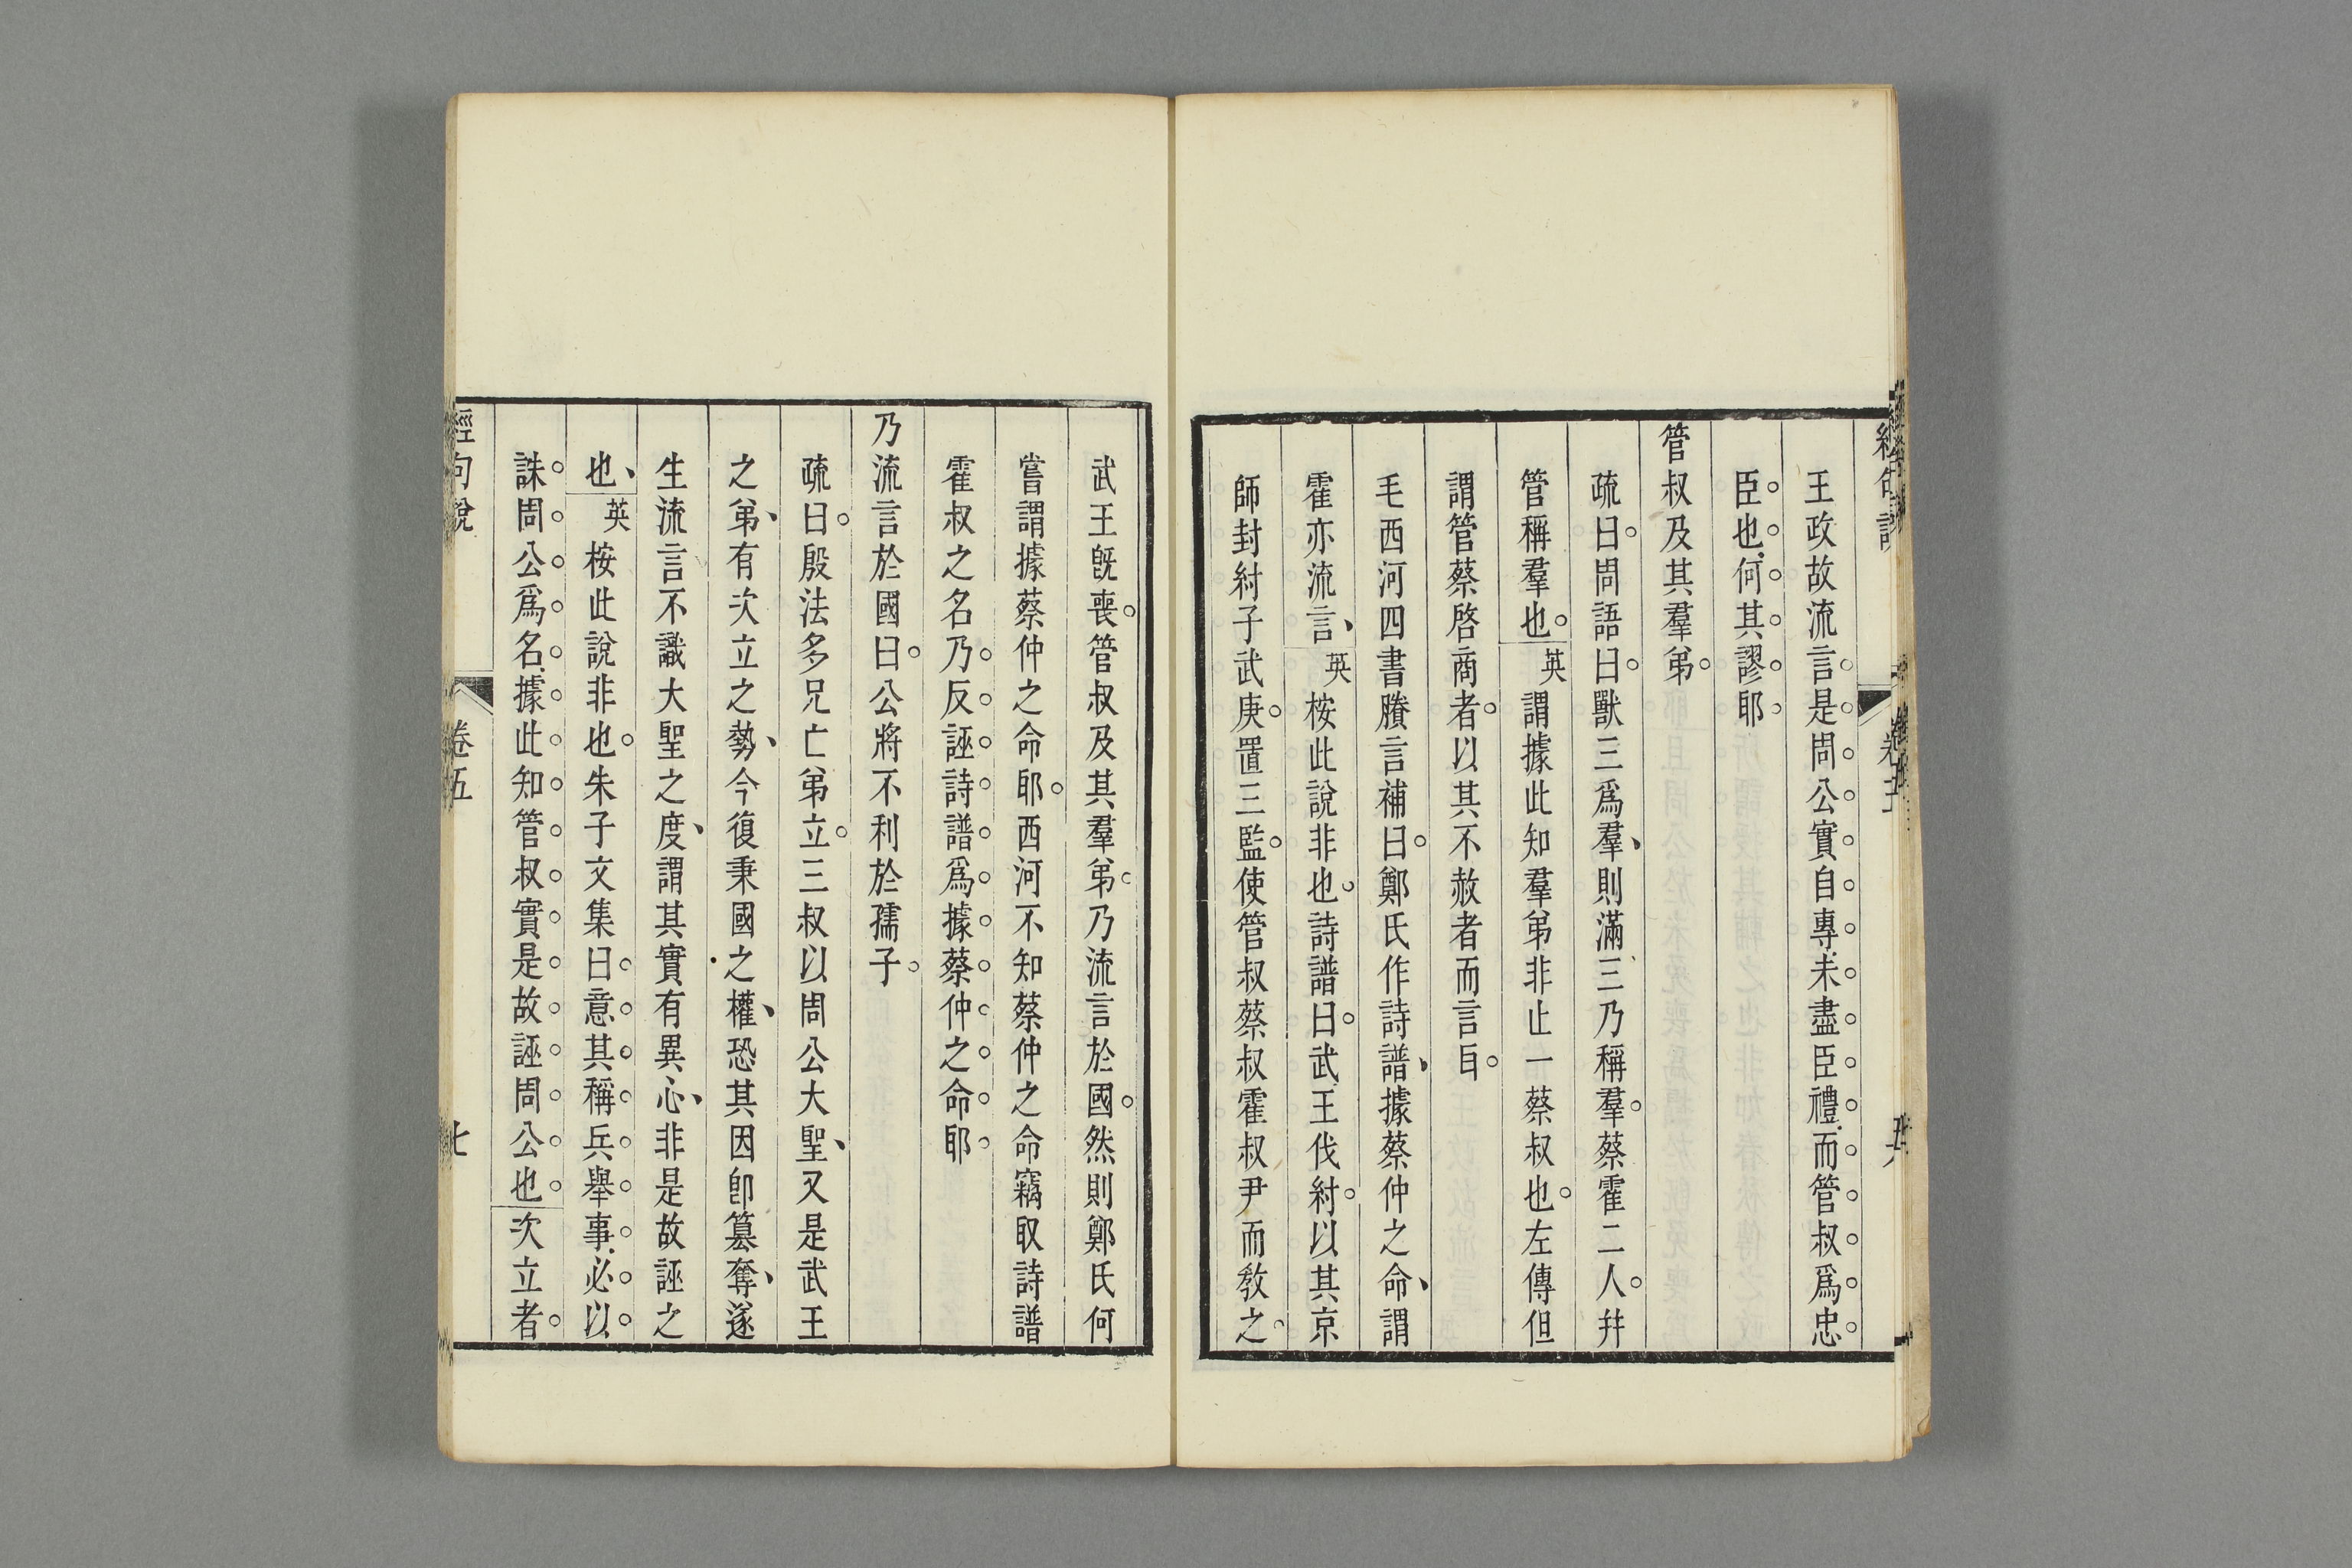 王政故流言是周公實自專未盡臣禮而管叔爲忠
臣也何其謬耶
管叔及其羣弟
疏曰周語曰獸三爲羣則滿三乃稱羣蔡霍二人幷
管稱羣也英謂據此知羣弟非止一蔡叔也左傳但
謂管蔡啓商者以其不赦者而言㠯
毛西河四書賸言補曰鄭氏作詩譜據蔡仲之命謂
霍亦流言英桉此說非也詩譜曰武王伐紂以其京
師封紂子武庚置三監使管叔蔡叔霍叔尹而敎之
武王旣喪管叔及其羣弟乃流言於國然則鄭氏何
嘗謂據蔡仲之命耶西河不知蔡仲之命竊取詩譜
霍叔之名乃反誣詩譜爲據蔡仲之命耶
乃流言於國曰公將不利於孺子
疏曰殷法多兄亡弟立三叔以周公大聖又是武王
之弟有次立之勢今復秉國之權恐其因卽篡奪遂
生流言不識大聖之度謂其實有異心非是故誣之
也英桉此說非也朱子文集曰意其稱兵舉事必以
誅周公爲名據此知管叔實是故誣周公也次立者
經句說 卷五 七